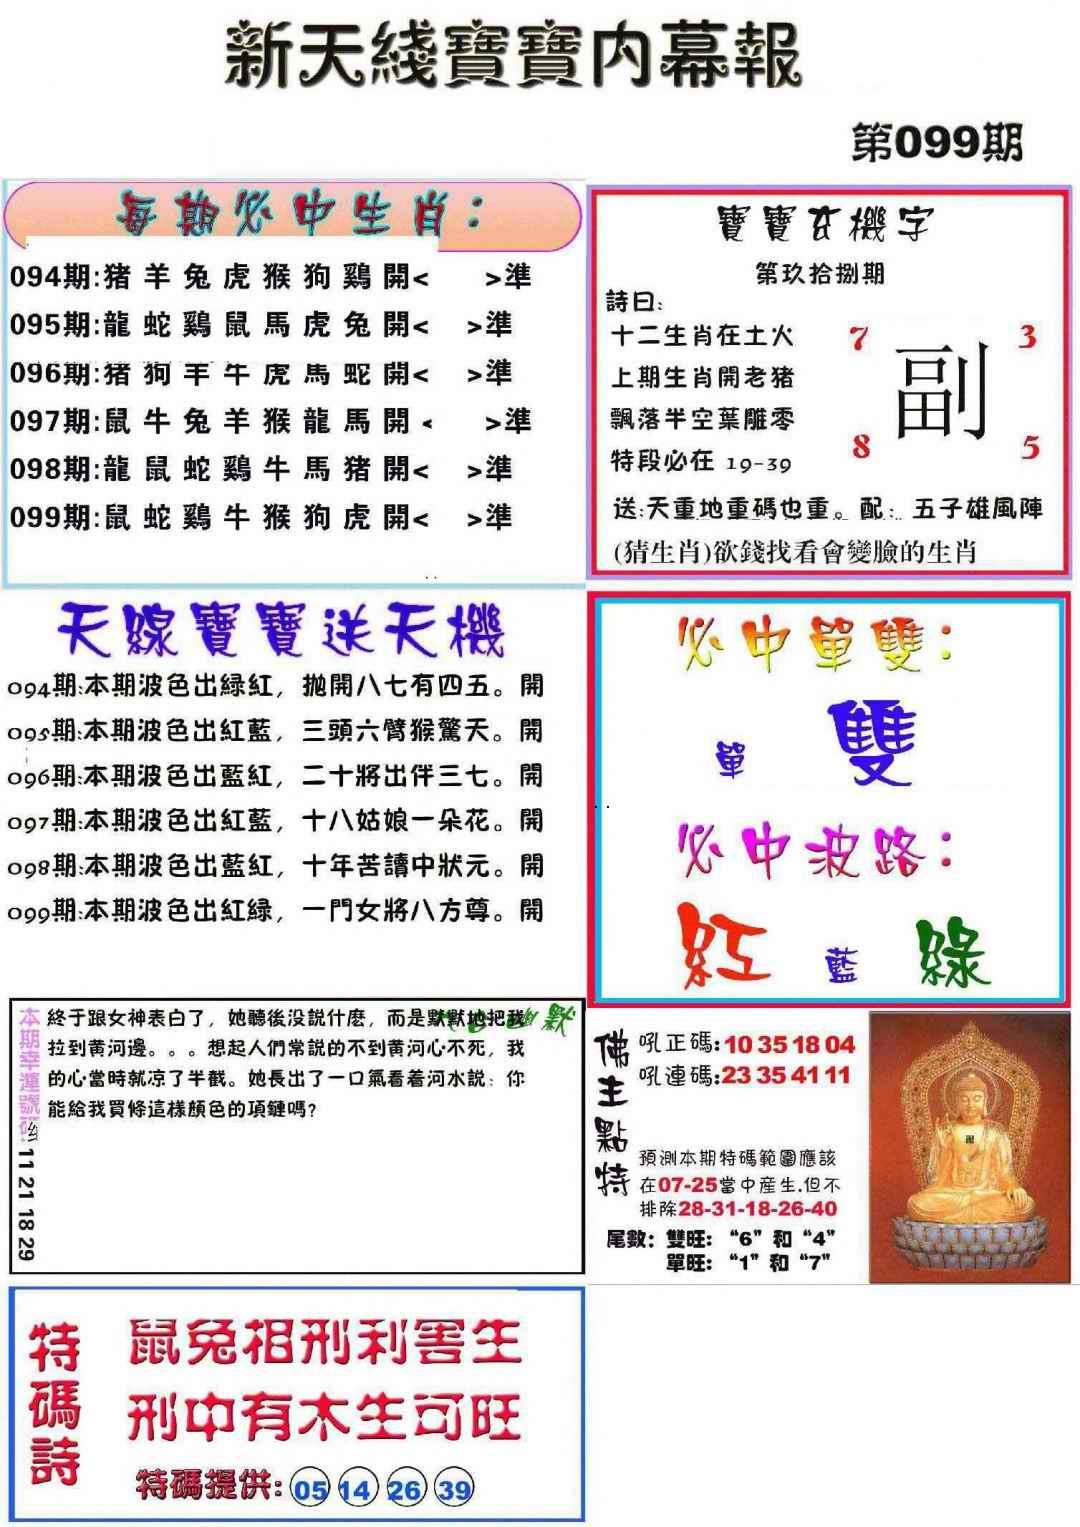 新天綫寶寶内幕報
第099期
每期必中生肖：
094期:猪羊兔虎猴狗鷄開< >準
095期:龍蛇鷄鼠馬虎兔開< >準
096期:猪狗羊牛虎馬蛇開< >準
097期:鼠牛兔羊猴龍馬開< >準
098期:龍鼠蛇鷄牛馬猪開< >準
099期:鼠蛇鷄牛猴狗虎開< >準
寶寶玄機字
第玖拾捌期
詩曰:
十二生肖在土火
上期生肖開老猪
飄落半空葉雕零
特段必在 19-39
7 3
副
8 5
送:天重地重碼也重。配: 五子雄風陣
(猜生肖)欲錢找看會變臉的生肖
天線寶寶送天機
094期:本期波色出緑紅，拋開八七有四五。開
095期:本期波色出紅藍，三頭六臂猴驚天。開
096期:本期波色出藍紅，二十將出伴三七。開
097期:本期波色出紅藍，十八姑娘一朵花。開
098期:本期波色出藍紅，十年苦讀中狀元。開
099期:本期波色出紅緑，一門女將八方尊。開
必中單雙：
單 雙
必中波路：
紅 藍 綠
本期幸運號碼:
11 21 18 29
幽默
終于跟女神表白了，她聽後没説什麽，而是默默地把我
拉到黄河邊。。。想起人們常説的不到黄河心不死，我
的心當時就凉了半截。她長出了一口氣看着河水説：你
能給我買條這樣顔色的項鏈嗎?
佛主點特
吼正碼:10 35 18 04
吼連碼:23 35 41 11
預測本期特碼範圍應該
在07-25當中産生.但不
排除28-31-18-26-40
尾數：雙旺：“6”和“4”
單旺：“1”和“7”
特碼詩
鼠兔相刑利害生
刑中有木生可旺
特碼提供: 05 14 26 39